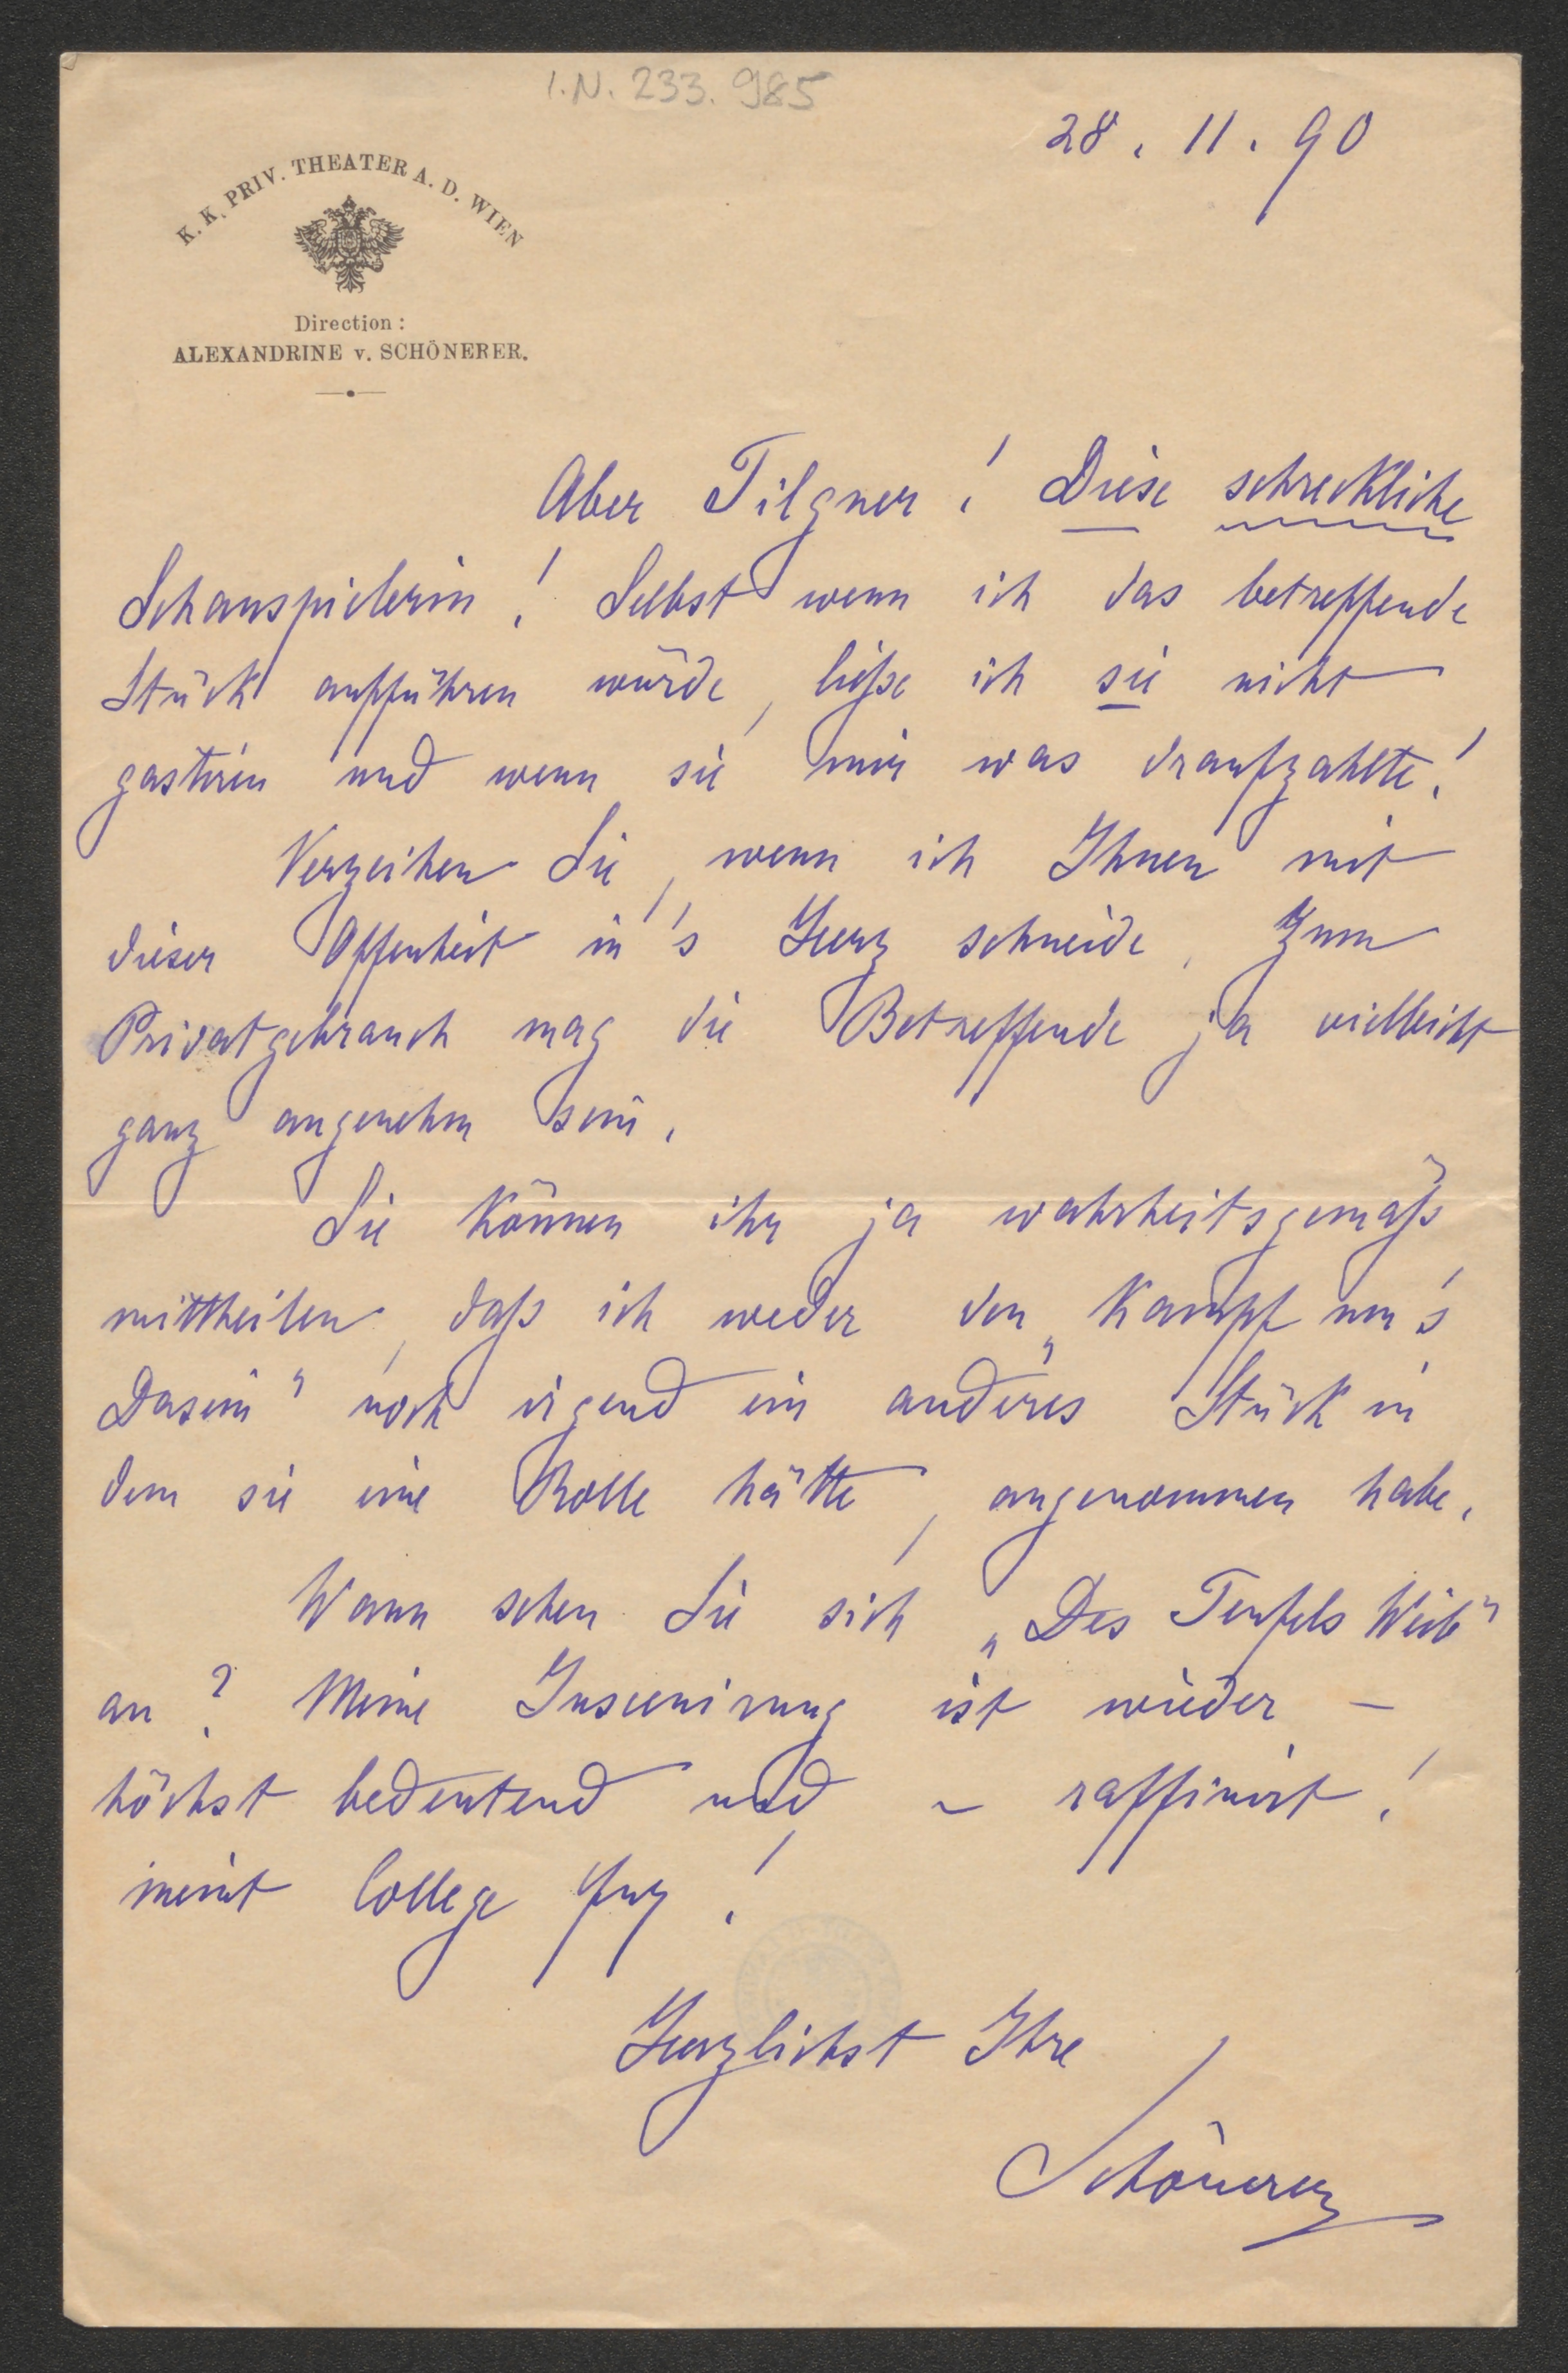 I.N. 233.985
28. 11. 90
K. K. PRIV. THEATER A. D. WIEN
Direction:
ALEXANDRINE v. SCHÖNERER.
Aber Tilgner! Diese schreckliche
Schauspielerin! Selbst wenn ich das betreffende
Stück aufführen würde, ließe ich sie nicht
gastiren und wenn sie mir was draufzahlte!
Verzeihen Sie, wenn ich Ihnen mit
dieser Offenheit in's Herz schneide, zum
Privatgebrauch mag die Betreffende ja vielleicht
ganz angenehm sein.
Sie können ihr ja wahrheitsgemäß
mittheilen, daß ich weder den „Kampf um's
Dasein" noch irgend ein anderes Stück in
dem sie eine Rolle hätte, angenommen habe.
Wann sehen Sie sich „Des Teufels Weib"
an? Meine Inscenirung ist wieder –
höchst bedeutend und ~ raffinirt!
meint College!
Herzlichst Ihre
Schönerer